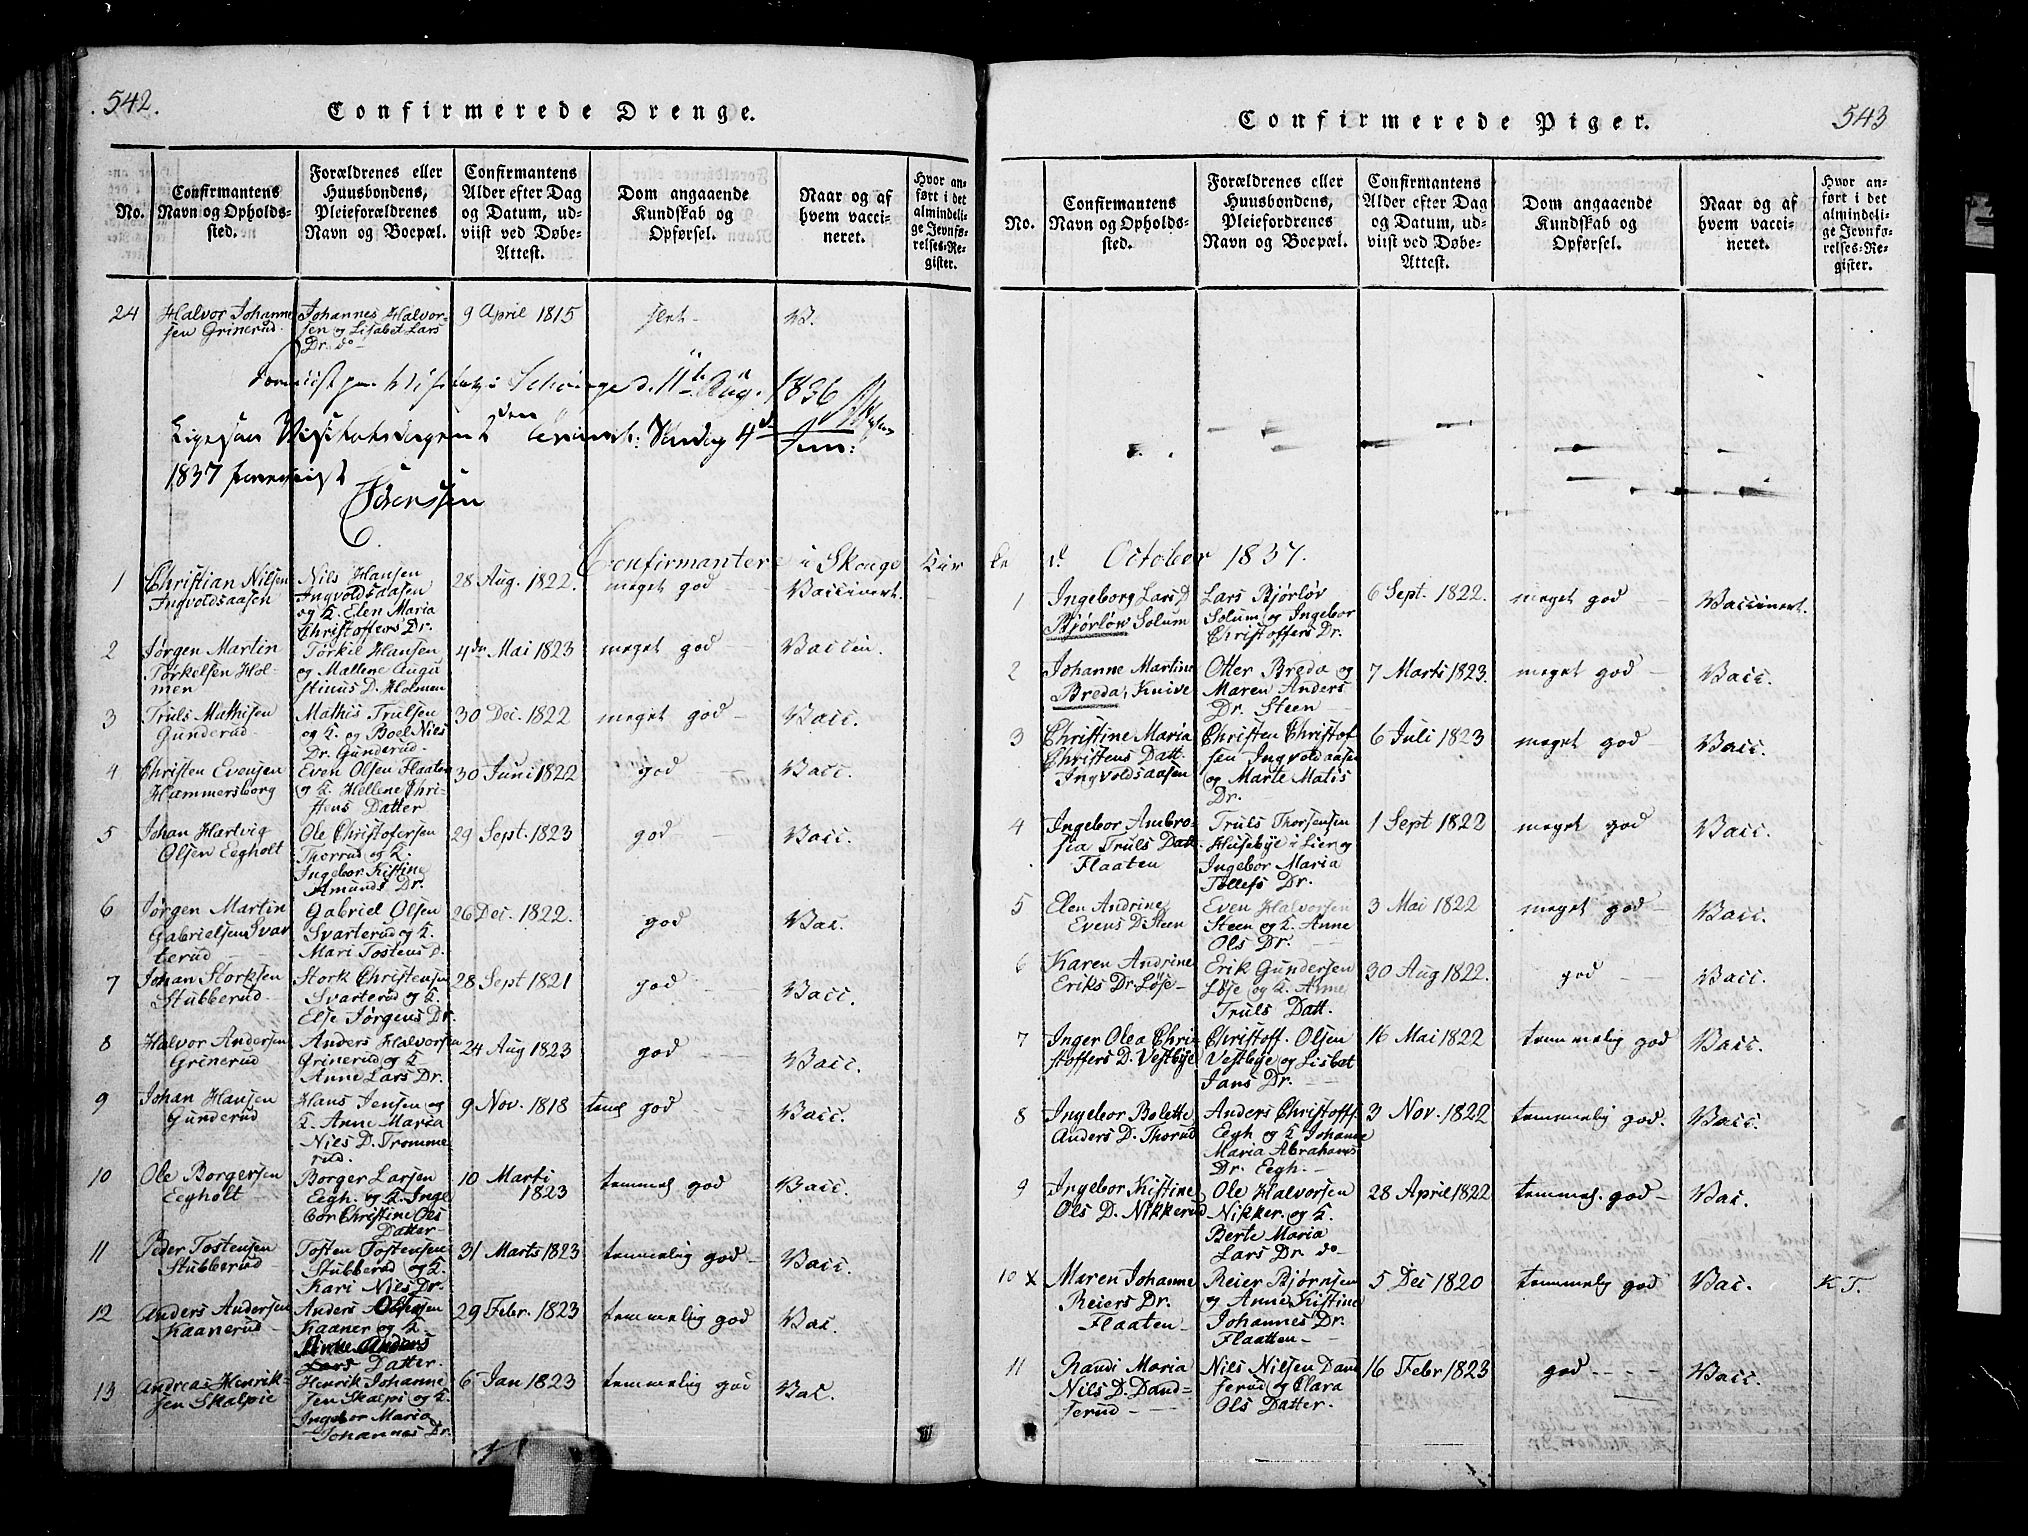 542.
Confirmerede Drenge.
No.
Confirmantens
Navn og Opholds-
sted.
Forældrenes eller
Huusbondens,
Pleieforældrenes
Navn og Boepæl.
Confirmantens
Alder efter Dag
og Datum, ud-
viist ved Døbe-
Attest.
Dom angaaende
Kundskab og
Opførsel.
Naar og af
hvem vacci-
neret.
Hvor an-
ført i det
almindeli-
ge Jevnfø-
relses-Re-
gister.
24
Halvor Johanne
sen Grinerud.
Johannes Halvor-
sen og Lisabet Lars
Dr. do
9 April 1815
slet
V.
d. 11te Aug. 1836
Ligesaa Visitatsdagen den
4de Jun:
1837 foreviist
Sørenssen
Confirmanter i Skouge Kir
1
Christian Nilsen
Ingvoldsaasen
Nils Hansen
Ingvoldsaasen
og K. Elen Maria
Christoffers Dr.
28 Aug. 1822.
meget god
Vaccinert.
2
Jørgen Martin
Torkelsen Hol-
men
Torkil Hansen
og Mallene Augu
stinus D. Holmen
4de Mai 1823
meget god
Vaccin.
3
Truls Mathisen
Gunderud
Mathis Trulsen
og K. og Boel Niels
Dr. Gunderud.
30 Dec. 1822
meget god
Vacc.
4
Christen Evensen
Hammersborg
Even Olsen Flaaten
og K. Hellene Chri-
stens Datter
30 Juni 1822
god
Vacc.
5
Johan Hartvig
Olsen Eegholt
Ole Christofersen
Thorrud og K.
Ingebor Kistine
Amunds Dr.
29 Sept. 1823
god
Vacc.
6
Jørgen Martin
Gabrielsen Svar
terud
Gabriel Olsen
Svarterud og K.
Mari Tostens D.
26 Dec. 1822.
god
Vac.
7
Johan Storksen
Stubberud.
Stork Christensen
Svarterud og K.
Else Jørgens Dr.
28 Sept 1821
god
Vacc.
8
Halvor Andersen
Grinerud
Anders Halvorsen
Grinerud og K.
Anne Lars Dr.
24 Aug 1823
god
Vacc.
9
Johan Hansen
Gunderud
Hans Jensen og
K. Anne Maria
Nils D. Tromme
rud.
9 Nov. 1818
tem. god
Vacc.
10
Ole Borgersen
Eegholt
Borger Larsen
Eegh. og K. Inge
bor Christine Ols
Datter
10 Marti
1823
temmel. god
Vacc.
11
Peder Tostensen
Stubberud
Tosten Tostensen
Stubberud og K.
Kari Nils Dr.
31 Marts 1823
temmelig god
Vacc.
12
Anders Andersen
Kaanerud
Anders Olsen
Kaaner og K.
Anne Anders
Lars Datter.
29 Febr. 1823
temmelig god
Vac.
13
Andreas Henrik-
sen Skalpie
Henrik Johanne
sen Skalpi og K.
Ingebor Maria
Johannes Dr.
6 Jan 1823
temmelig god
Vac.
543
Confirmerede Piger.
No.
Confirmantens
Navn og Opholds-
sted.
Forældrenes eller
Huusbondens,
Pleiefordrenes
Navn og Boepæl.
Confirmantens
Alder efter Dag
og Datum, ud-
viist ved Døbe-
Attest.
Dom angaaende
Kundskab og
Opførsel.
Naar og af
hvem vacci-
neret.
Hvor an-
ført i det
almindeli-
ge Jevnfø-
relses-Re-
gister.
ke d. October 1837.
1
Ingeborg Lars D
Bjørløw Solum
Lars Bjørløv
Solum og Ingebor
Christoffers Dr.
6 Sept. 1822.
meget god
Vaccinert.
2
Johanne Martine
Breda, Knive
Otter Breda og
Maren Anders
Dr. Steen
7 Marts 1823.
meget god
Vacc.
3
Christine Maria
Christens Datt.
Ingvoldsaasen
Christen Christof
sen Ingvoldaasen
og Marte Matis
Dr.
6 Juli 1823
meget god
Vacc.
4
Ingebor Ambro-
sia Truls Datt.
Flaaten
Truls Thorsensen
Husebye i Lier og
Ingebor Maria
Tollefs Dr.
1 Sept 1822
meget god
Vacc.
5
Elen Andrine
Evens D. Steen
Even Halvorsen
Steen og K. Anne
Ols Dr.
3 Mai 1822
meget god
Vacc.
6
Karen Andrine
Eriks Dr. Løse
Erik Gundersen
Løse og K. Anne
Truls Datt.
30 Aug 1822.
god
Vacc.
7
Inger Olea Chri-
stoffers D. Vestbye
Christoff. Olsen
Vestbye og Lisbet
Jans Dr.
16 Mai 1822
temmelig god
Vacc.
8
Ingebor Bolette
Anders D. Thorud
Anders Christoff.
Eegh og K. Johanne
Maria Abrahams
Dr. Eegh.
3 Nov. 1822
temmelig god.
Vacc.
9
Ingebor Kistine
Ols D. Nikkerud
Ole Halvorsen
Nikker. og K.
Berte Maria
Lars Dr. do
28 April 1822
temmel. god
Vac.
10 x
Maren Johanne
Reiers Dr.
Flaaten
Reier Bjørnsen
og Anne Kistine
Johannes Dr.
Flaatten
5 Dec 1820
temmelig god
Vac.
K T.
11
Randi Maria
Nils D. Dand-
serud
Nils Nilsen Dand
serud og Clara
Ols Datter.
16 Febr 1823
god
Vacc.